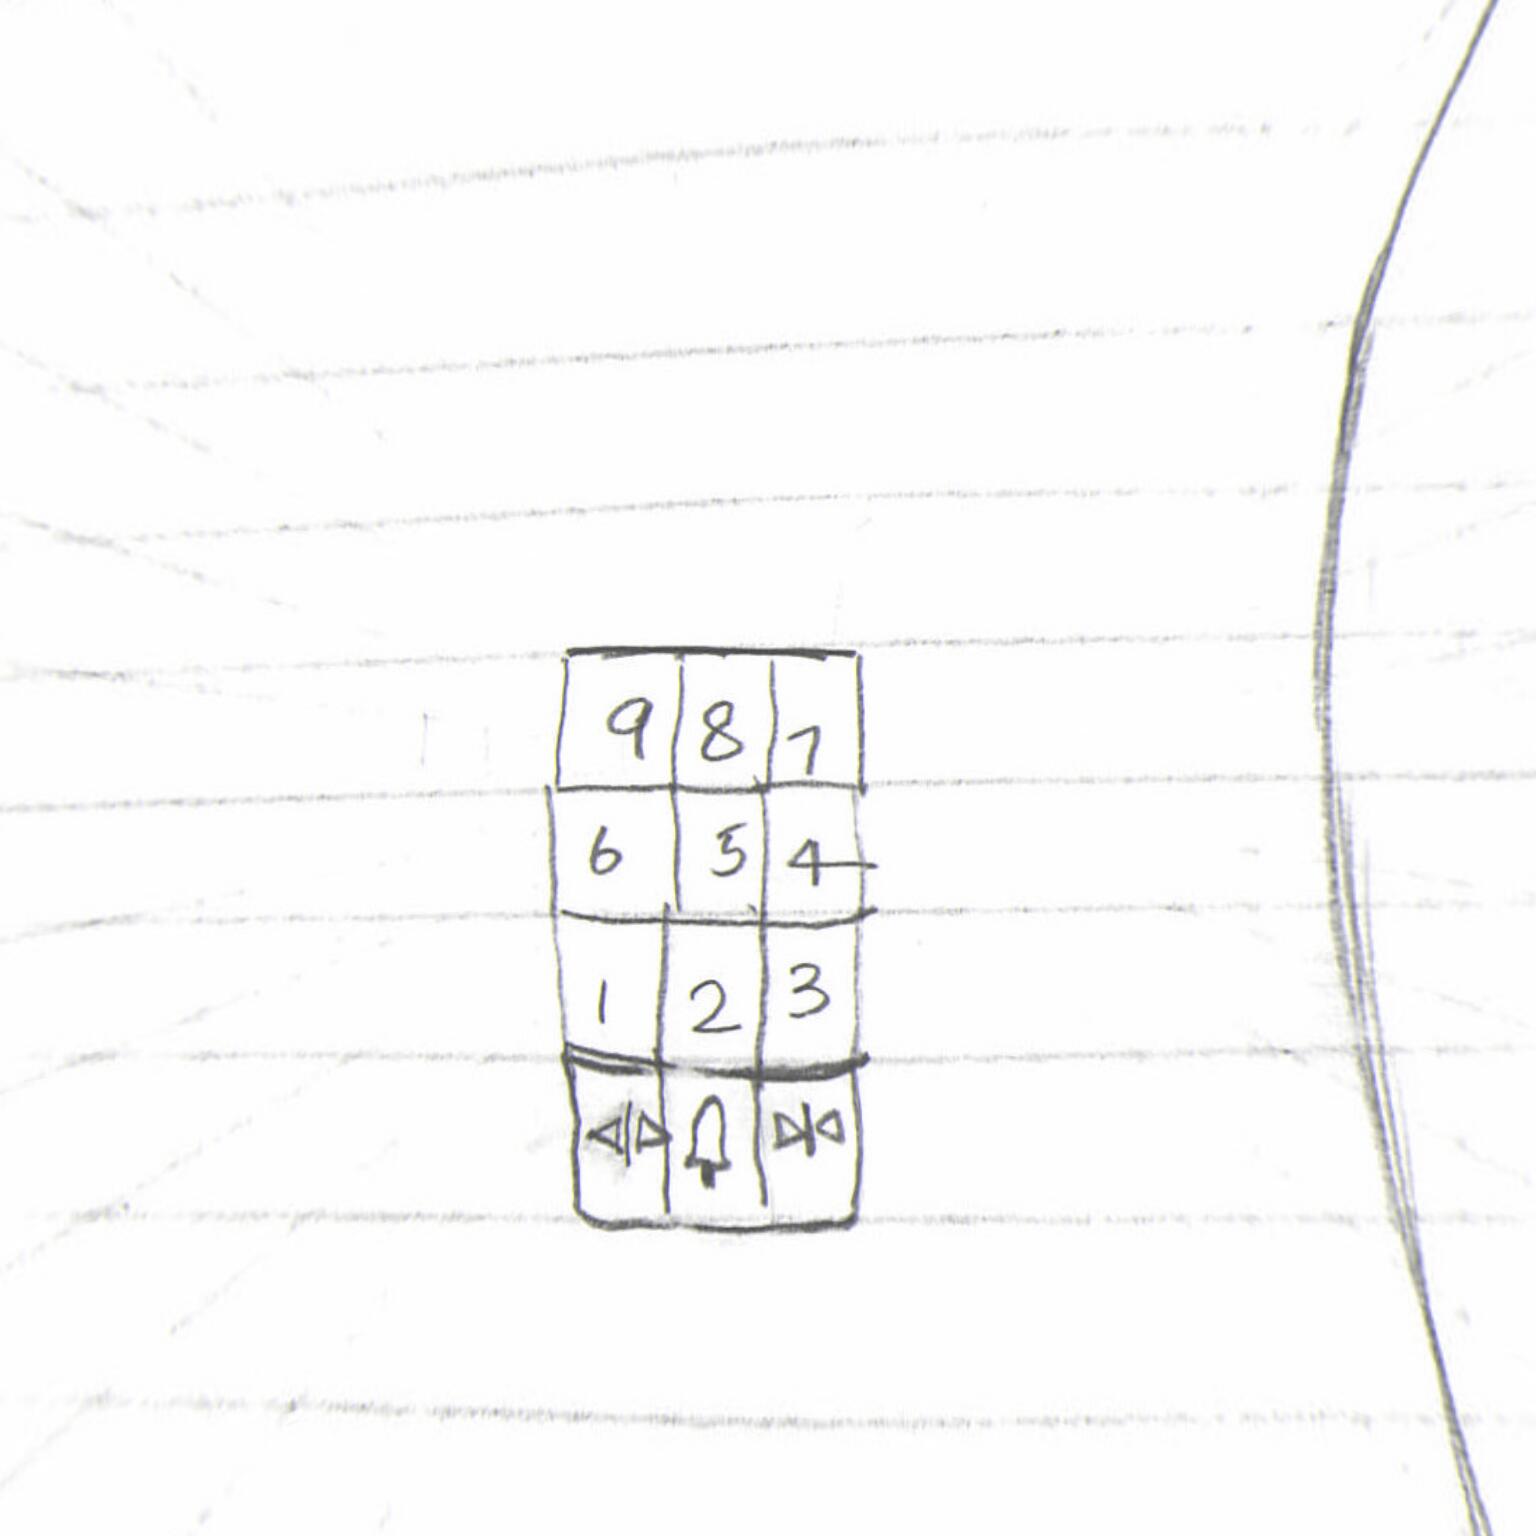 9 8 7
6 5 4
1 2 3